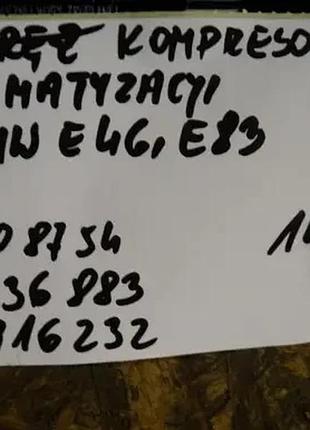 RĘŻ KOMPRESO
MATYZACYI
MW E46, E83
08754 14
36883
116232